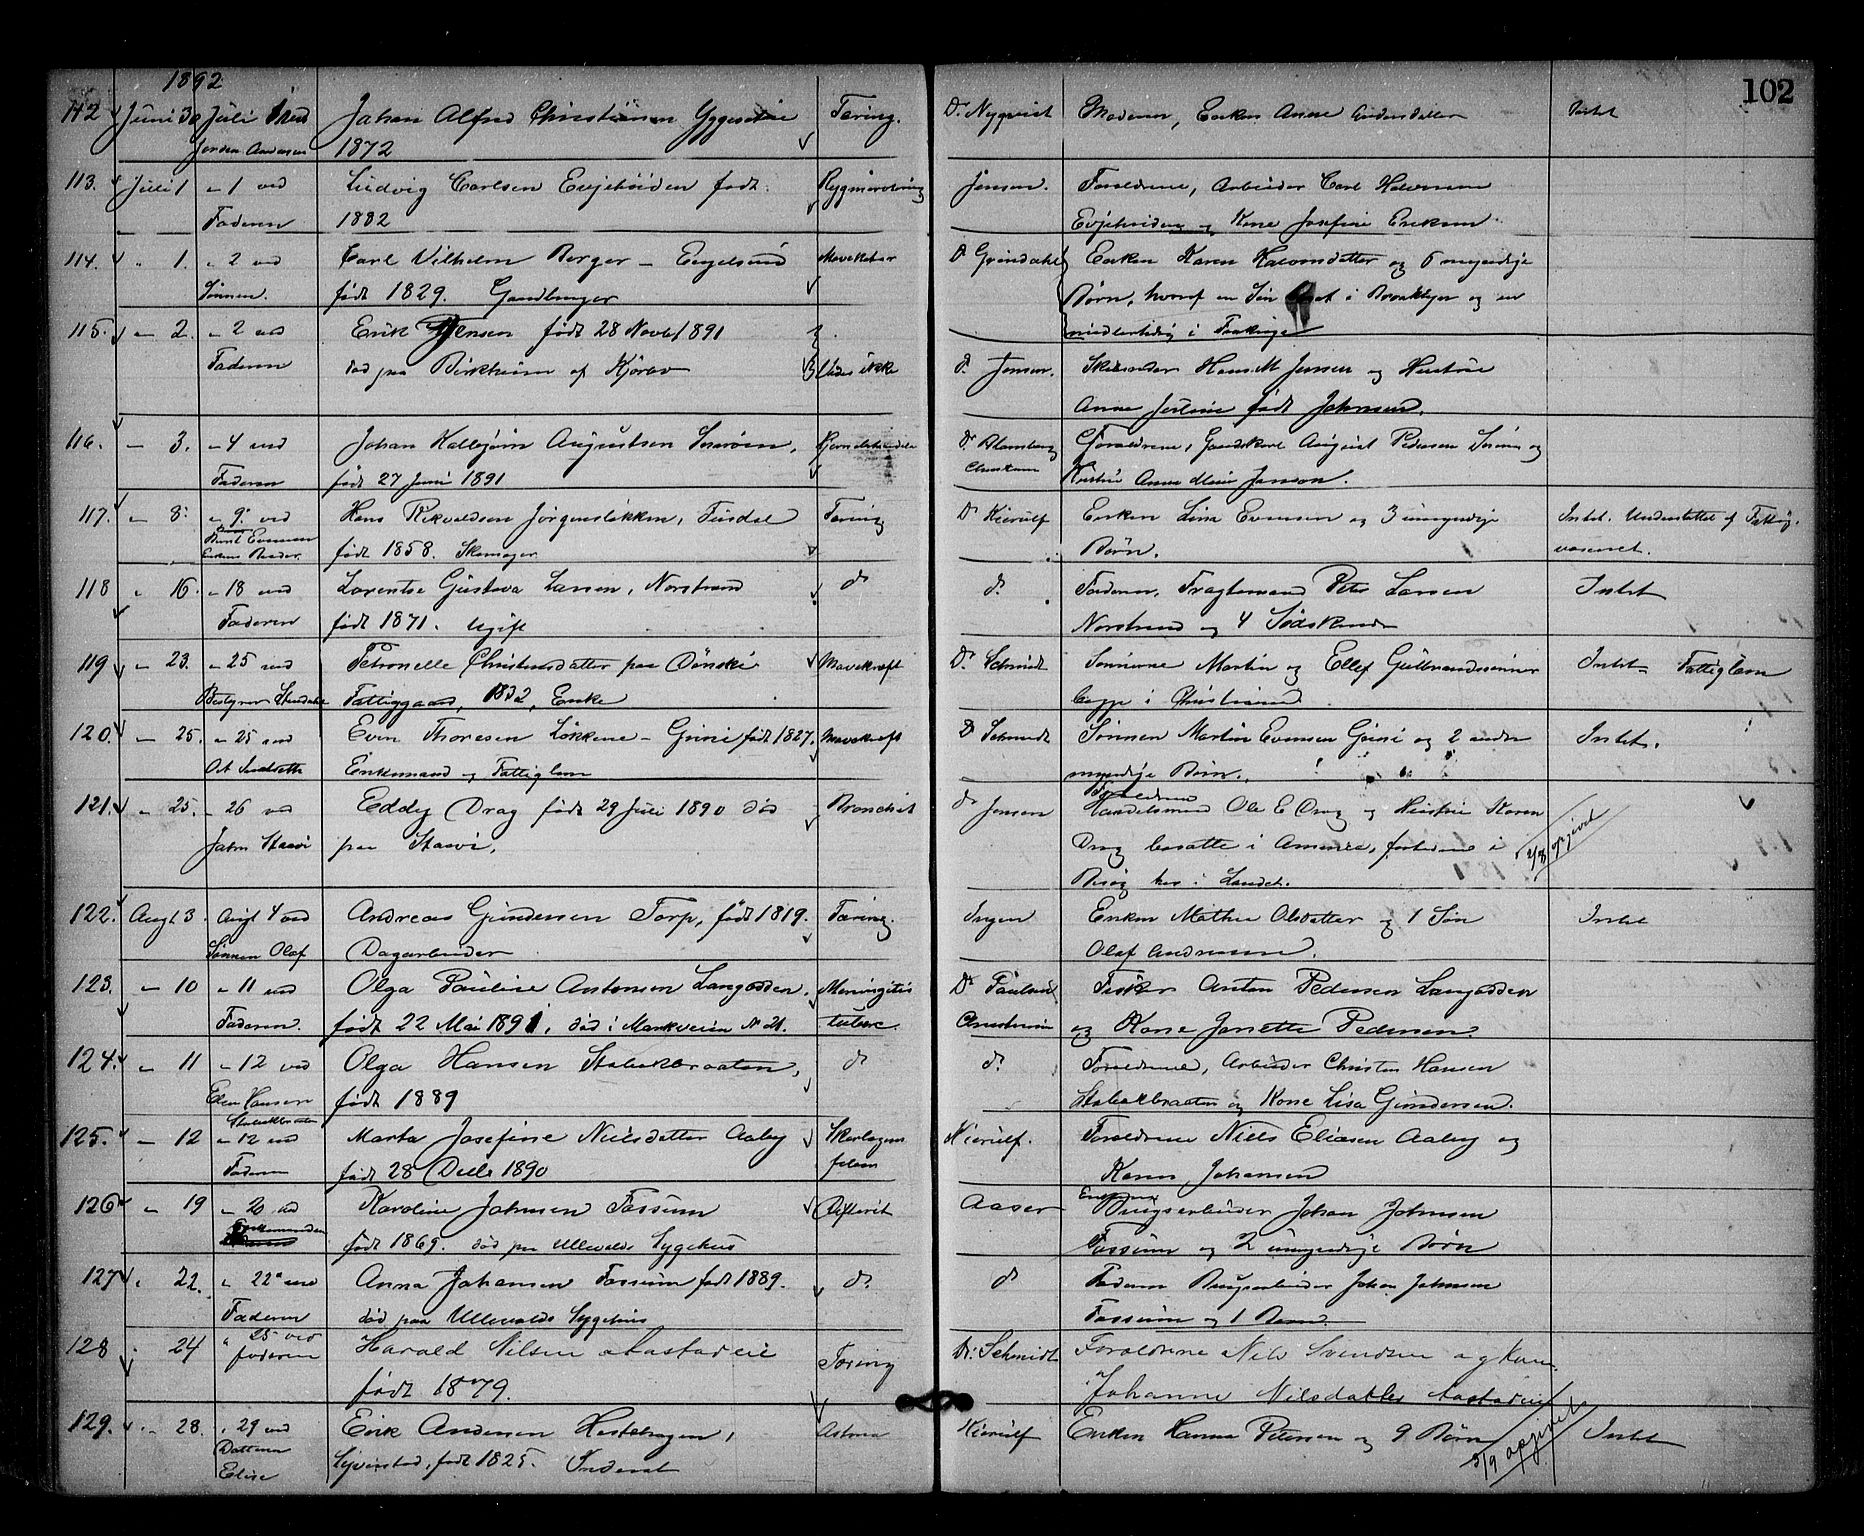 1892
102
112 Juni 30 Juli 1 ved Johan Alfred Christiansen Tæring. Dr Nyqvist Moderen, Enken Anne Intet
1872
113. Juli 1 " 1 ved Ludvig Carlsen Evjehøiden født Jensen. Forældrene, Arbeider Carl Halvorsen
Faderen 1882 Evjehøiden og Kone Josefine Eriksen
114. " 1. " 2 ved Carl Vilhelm Berger – Engelsrud Mavekatar Dr Grøndahl Enken Karen Halvorsdatter og 6 myndige
Sønnen. født 1829. Gaardbruger Børn, hvoraf en Søn i og en
midlertidig i
115. " 2. " 2 ved Erik Jensen født 28 Novbr 1891
Faderen død paa af Vides ikke Dr Jensen. Hans M Jensen og Hustru
Anne født Johnsen.
116. " 3. " 4 ved Johan Augustsen Dr Forældrene, August Pedersen og
Faderen født 27 Juni 1891 Hustru Anne Marie Jonson.
117. " 8. " 9. ved Hans Jørgensløkken, Tæring Dr Kierulf Enken Lina Evensen og 3 umyndige Intet. Understøttet af Fattig-
Evensen født 1858. Skomager Børn. væsenet.
118 " 16. " 18 ved Lorentse Gustava Larsen, Norstrand do do Faderen, Fragtemand Peter Larsen Intet
Faderen født 1871. ugift Norstrand og 4 Sødskende
119 " 23. " 25 ved Petronelle Christensdatter paa Dønski Mavekræft Dr. Schmidt Sønnerne Martin og Ellef Gulbrandssønner Intet Fattiglem
Bestyrer Fattiggaard, 1832, Enke i Christiania
120. " 25. " 25 ved Even Thoresen Løkkene – Grini født 1827. Mavekræft Dr Schmidt Sønnen Martin Evensen Grini og 2 andre Intet.
Enkemand og Fattiglem myndige Børn.
121. " 25. " 26 ved Eddy Drag født 29 Juli 1890 død Bronchit Dr Jensen Forældrene Handelsmand Ole E Drag og Hustru Karen
John Staavi paa Staavi. Drag bosatte i Amerika, for tiden i 2/8 opgivet
Besøg her i Landet.
122. Augt 3 Augt 4 ved Andreas Gundersen Torp, født 1819. Tæring. Ingen Enken Mathea Olsdatter og 1 Søn Intet
Sønnen Olaf Dagarbeider Olaf Andreassen.
123. " 10 " 11 ved Olga Pauline Antonsen Langodden. Meningitis Dr Paulsen Fisker Anton Pedersen Langodden
Faderen. født 22 Mai 1891, død i Markveien No 21. tuberc. Christiania og Kone Janette Pedersen.
124. " 11 " 12 ved Olga Hansen Stabækbraaten, do do. Forældrene, Arbeider Christen Hansen
Hansen født 1889 Stabækbraaten og Kone Lisa Gundersen.
Stabækbraaten
125. " 12 " 12 ved Marta Josefine Nielsdatter Aaby Skarlagens Kierulf. Forældrene Niels Eliasen Aaby og
Faderen født 28 Decbr 1890 feber Karen Johansen
126 " 19 " 20 ved Karoline Johnsen Fossum Difterit Aaser Brugsarbeider Johan Johnsen
Enkemanden født 1869. død paa Ullevolds Sygehus Fossum og 2 umyndige Børn
127 " 22. " 22 ved Anna Johansen Fossum født 1889. do. do Faderen Brugsarbeider Johan Johnsen
Faderen død paa Ullevolds Sygehus Fossum og 1 Barn
128 " 24 " 25 ved Harald Nilsen Tæring Dr. Schmidt Forældrene Nils Svendsen og Kone
faderen født 1879. Johanne Nilsdatter
129. " 28. " 29 ved Erik Andersen Hestehagen, Astma Kierulf Enken Hanna Petersen og 9 Børn 5/9 opgivet Intet
Datteren født 1825. Inderst
Elise